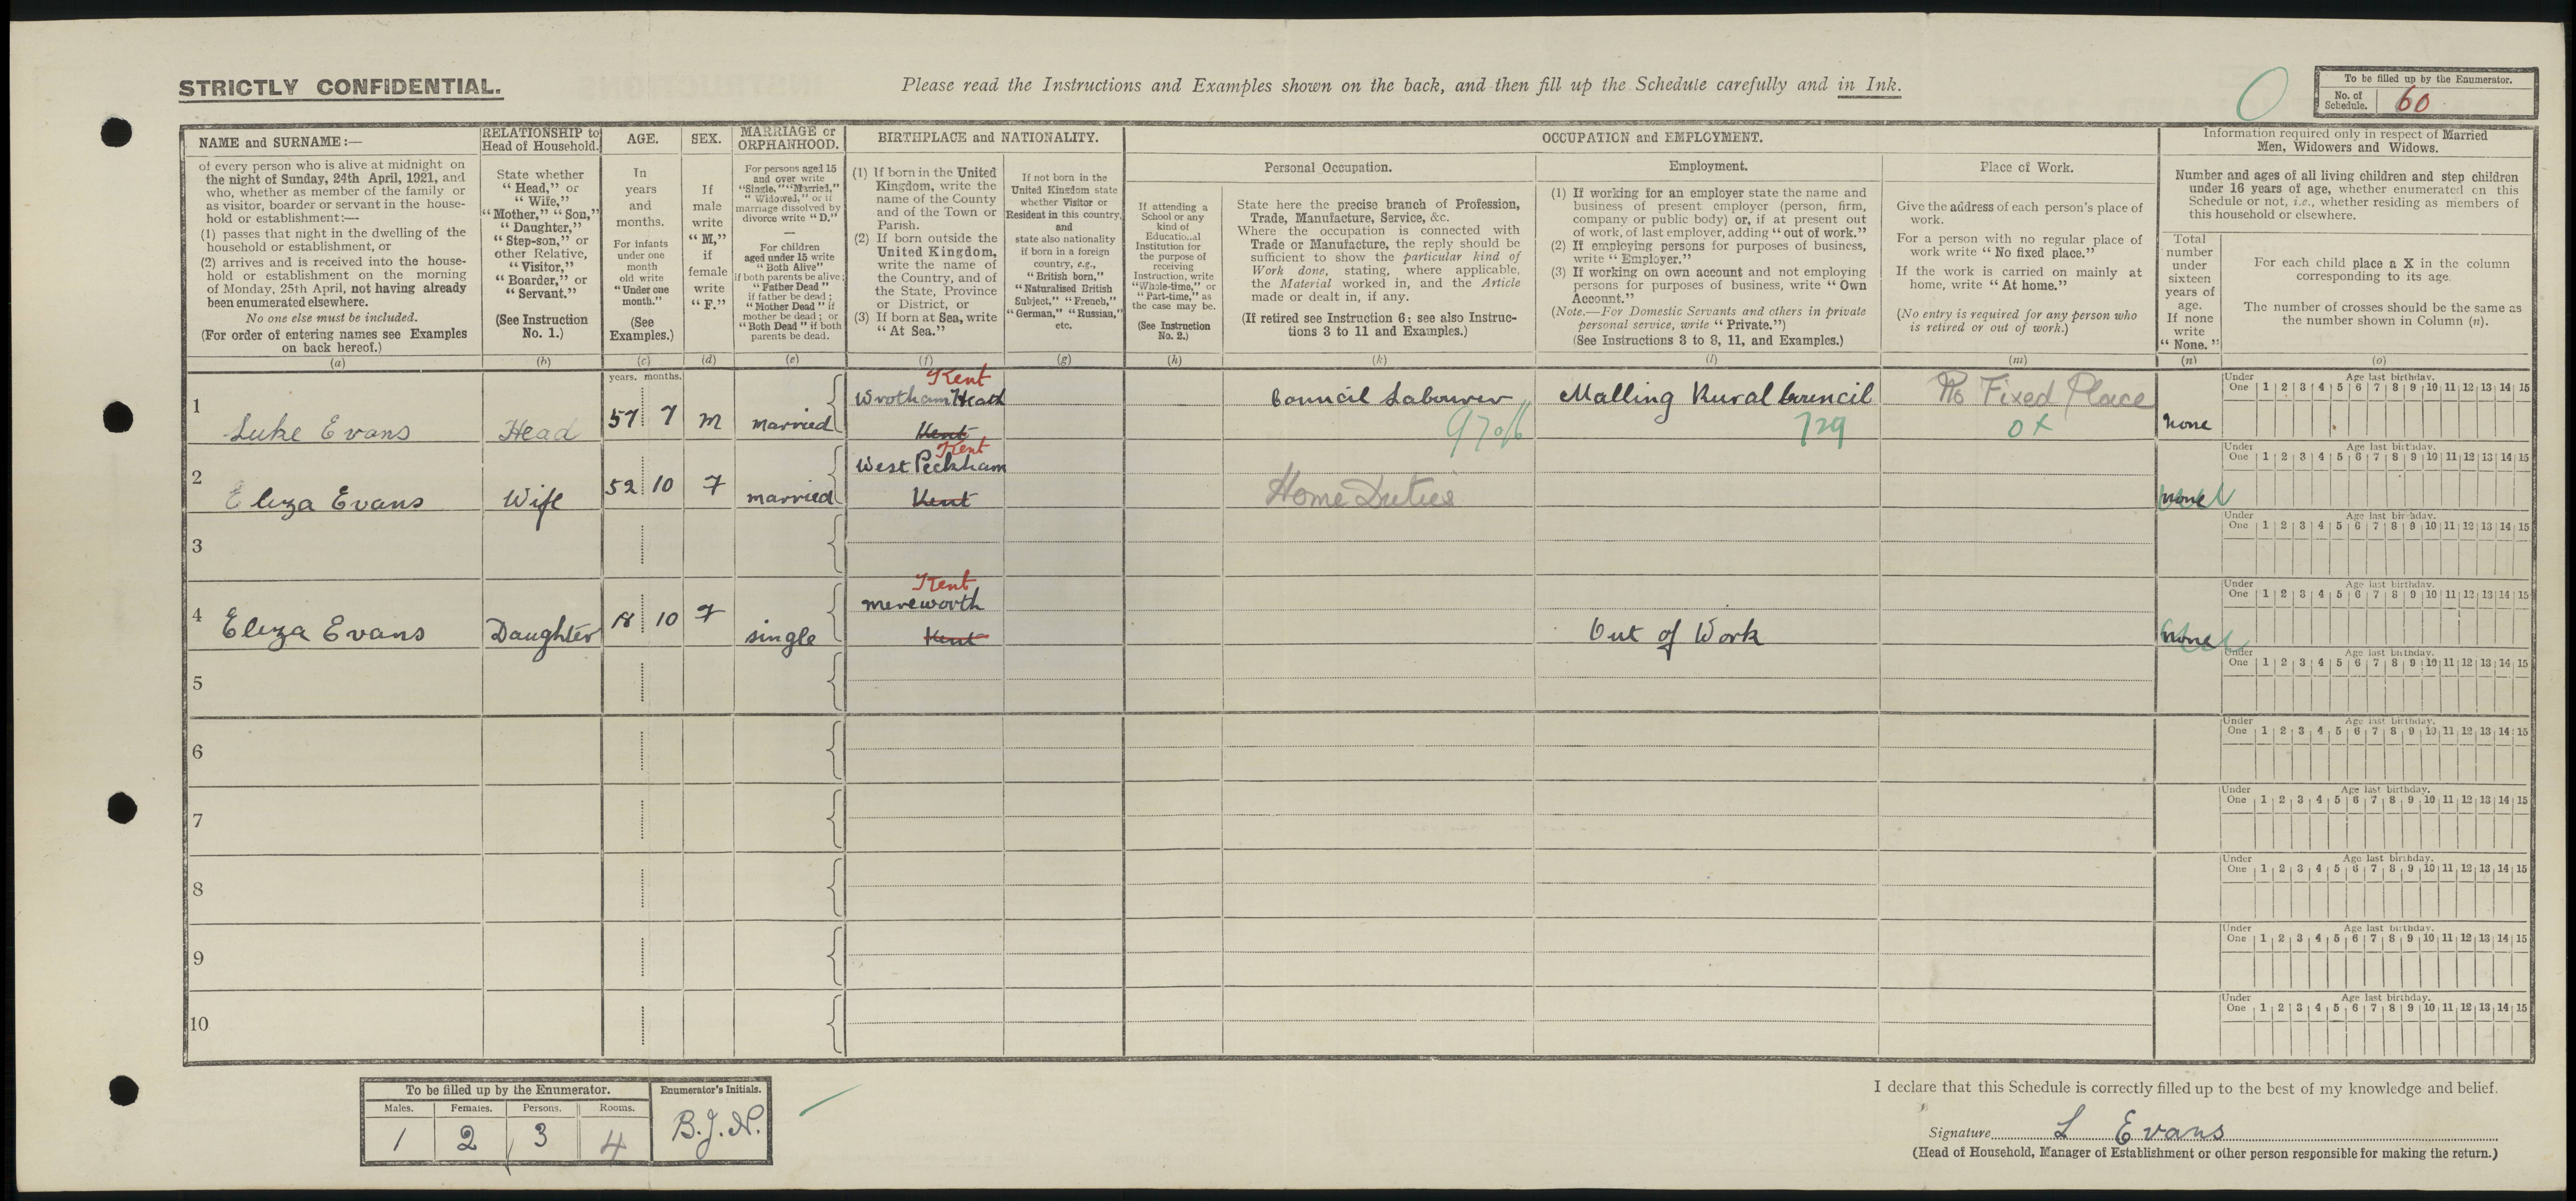 STRICTLY CONFIDENTIAL.
Please read the Instructions and Examples shown on the back, and then fill up the Schedule carefully and in Ink.
To be filled up by the Enumerator.
No. of Schedule. 60
NAME and SURNAME:—
of every person who is alive at midnight on
the night of Sunday, 24th April, 1921, and
who, whether as member of the family or
as visitor, boarder or servant in the house-
hold or establishment:—
(1) passes that night in the dwelling of the
household or establishment, or
(2) arrives and is received into the house-
hold or establishment on the morning
of Monday, 25th April, not having already
been enumerated elsewhere.
No one else must be included.
(For order of entering names see Examples
on back hereof.)
(a)
RELATIONSHIP to
Head of Household.
State whether
"Head," or
"Wife,"
"Mother," "Son,"
"Daughter,"
"Step-son," or
other Relative,
"Visitor,"
"Boarder," or
"Servant."
(See Instruction
No. 1.)
(b)
AGE.
In
years
and
months.
For infants
under one
month
old write
"Under one
month."
(See
Examples.)
(c)
SEX.
If
male
write
"M,"
if
female
write
"F."
(d)
MARRIAGE or
ORPHANHOOD.
For persons aged 15
and over write
"Single," "Married,"
"Widowed," or if
marriage dissolved by
divorce write "D."
—
For children
aged under 15 write
"Both Alive"
if both parents be alive;
"Father Dead"
if father be dead;
"Mother Dead" if
mother be dead; or
"Both Dead" if both
parents be dead.
(e)
BIRTHPLACE and NATIONALITY.
(1) If born in the United
Kingdom, write the
name of the County
and of the Town or
Parish.
(2) If born outside the
United Kingdom,
write the name of
the Country, and of
the State, Province
or District, or
(3) If born at Sea, write
"At Sea."
(f)
If not born in the
United Kingdom state
whether Visitor or
Resident in this country,
and
state also nationality
if born in a foreign
country, e.g.,
"British born,"
"Naturalised British
Subject," "French,"
"German," "Russian,"
etc.
(g)
OCCUPATION and EMPLOYMENT.
If attending a
School or any
kind of
Educational
Institution for
the purpose of
receiving
Instruction, write
"Whole-time," or
"Part-time," as
the case may be.
(See Instruction
No. 2.)
(h)
Personal Occupation.
State here the precise branch of Profession,
Trade, Manufacture, Service, &c.
Where the occupation is connected with
Trade or Manufacture, the reply should be
sufficient to show the particular kind of
Work done, stating, where applicable,
the Material worked in, and the Article
made or dealt in, if any.
(If retired see Instruction 6; see also Instruc-
tions 3 to 11 and Examples.)
(k)
Employment.
(1) If working for an employer state the name and
business of present employer (person, firm,
company or public body) or, if at present out
of work, of last employer, adding "out of work."
(2) If employing persons for purposes of business,
write "Employer."
(3) If working on own account and not employing
persons for purposes of business, write "Own
Account."
(Note.—For Domestic Servants and others in private
personal service, write "Private.")
(See Instructions 3 to 8, 11, and Examples.)
(l)
Place of Work.
Give the address of each person's place of
work.
For a person with no regular place of
work write "No fixed place."
If the work is carried on mainly at
home, write "At home."
(No entry is required for any person who
is retired or out of work.)
(m)
Information required only in respect of Married
Men, Widowers and Widows.
Number and ages of all living children and step children
under 16 years of age, whether enumerated on this
Schedule or not, i.e., whether residing as members of
this household or elsewhere.
Total
number
under
sixteen
years of
age.
If none
write
"None."
(n)
For each child place a X in the column
corresponding to its age.
The number of crosses should be the same as
the number shown in Column (n).
(o)
years. months.
Under One Age last birthday. 1 2 3 4 5 6 7 8 9 10 11 12 13 14 15
1 Luke Evans Head 57 7 M married Kent Wrotham Heath Kent Council Labourer 970/6 Malling Rural Council 729 No Fixed Place 0X none
Under One Age last birthday. 1 2 3 4 5 6 7 8 9 10 11 12 13 14 15
2 Eliza Evans Wife 52 10 F married Kent West Peckham Kent Home Duties none
Under One Age last birthday. 1 2 3 4 5 6 7 8 9 10 11 12 13 14 15
3
Under One Age last birthday. 1 2 3 4 5 6 7 8 9 10 11 12 13 14 15
4 Eliza Evans Daughter 18 10 F single Kent mereworth Kent Out of Work none
Under One Age last birthday. 1 2 3 4 5 6 7 8 9 10 11 12 13 14 15
5
Under One Age last birthday. 1 2 3 4 5 6 7 8 9 10 11 12 13 14 15
6
Under One Age last birthday. 1 2 3 4 5 6 7 8 9 10 11 12 13 14 15
7
Under One Age last birthday. 1 2 3 4 5 6 7 8 9 10 11 12 13 14 15
8
Under One Age last birthday. 1 2 3 4 5 6 7 8 9 10 11 12 13 14 15
9
Under One Age last birthday. 1 2 3 4 5 6 7 8 9 10 11 12 13 14 15
10
To be filled up by the Enumerator.
Males. Females. Persons. Rooms.
1 2 3 4
Enumerator's Initials.
B.J.N.
I declare that this Schedule is correctly filled up to the best of my knowledge and belief.
Signature L Evans
(Head of Household, Manager of Establishment or other person responsible for making the return.)